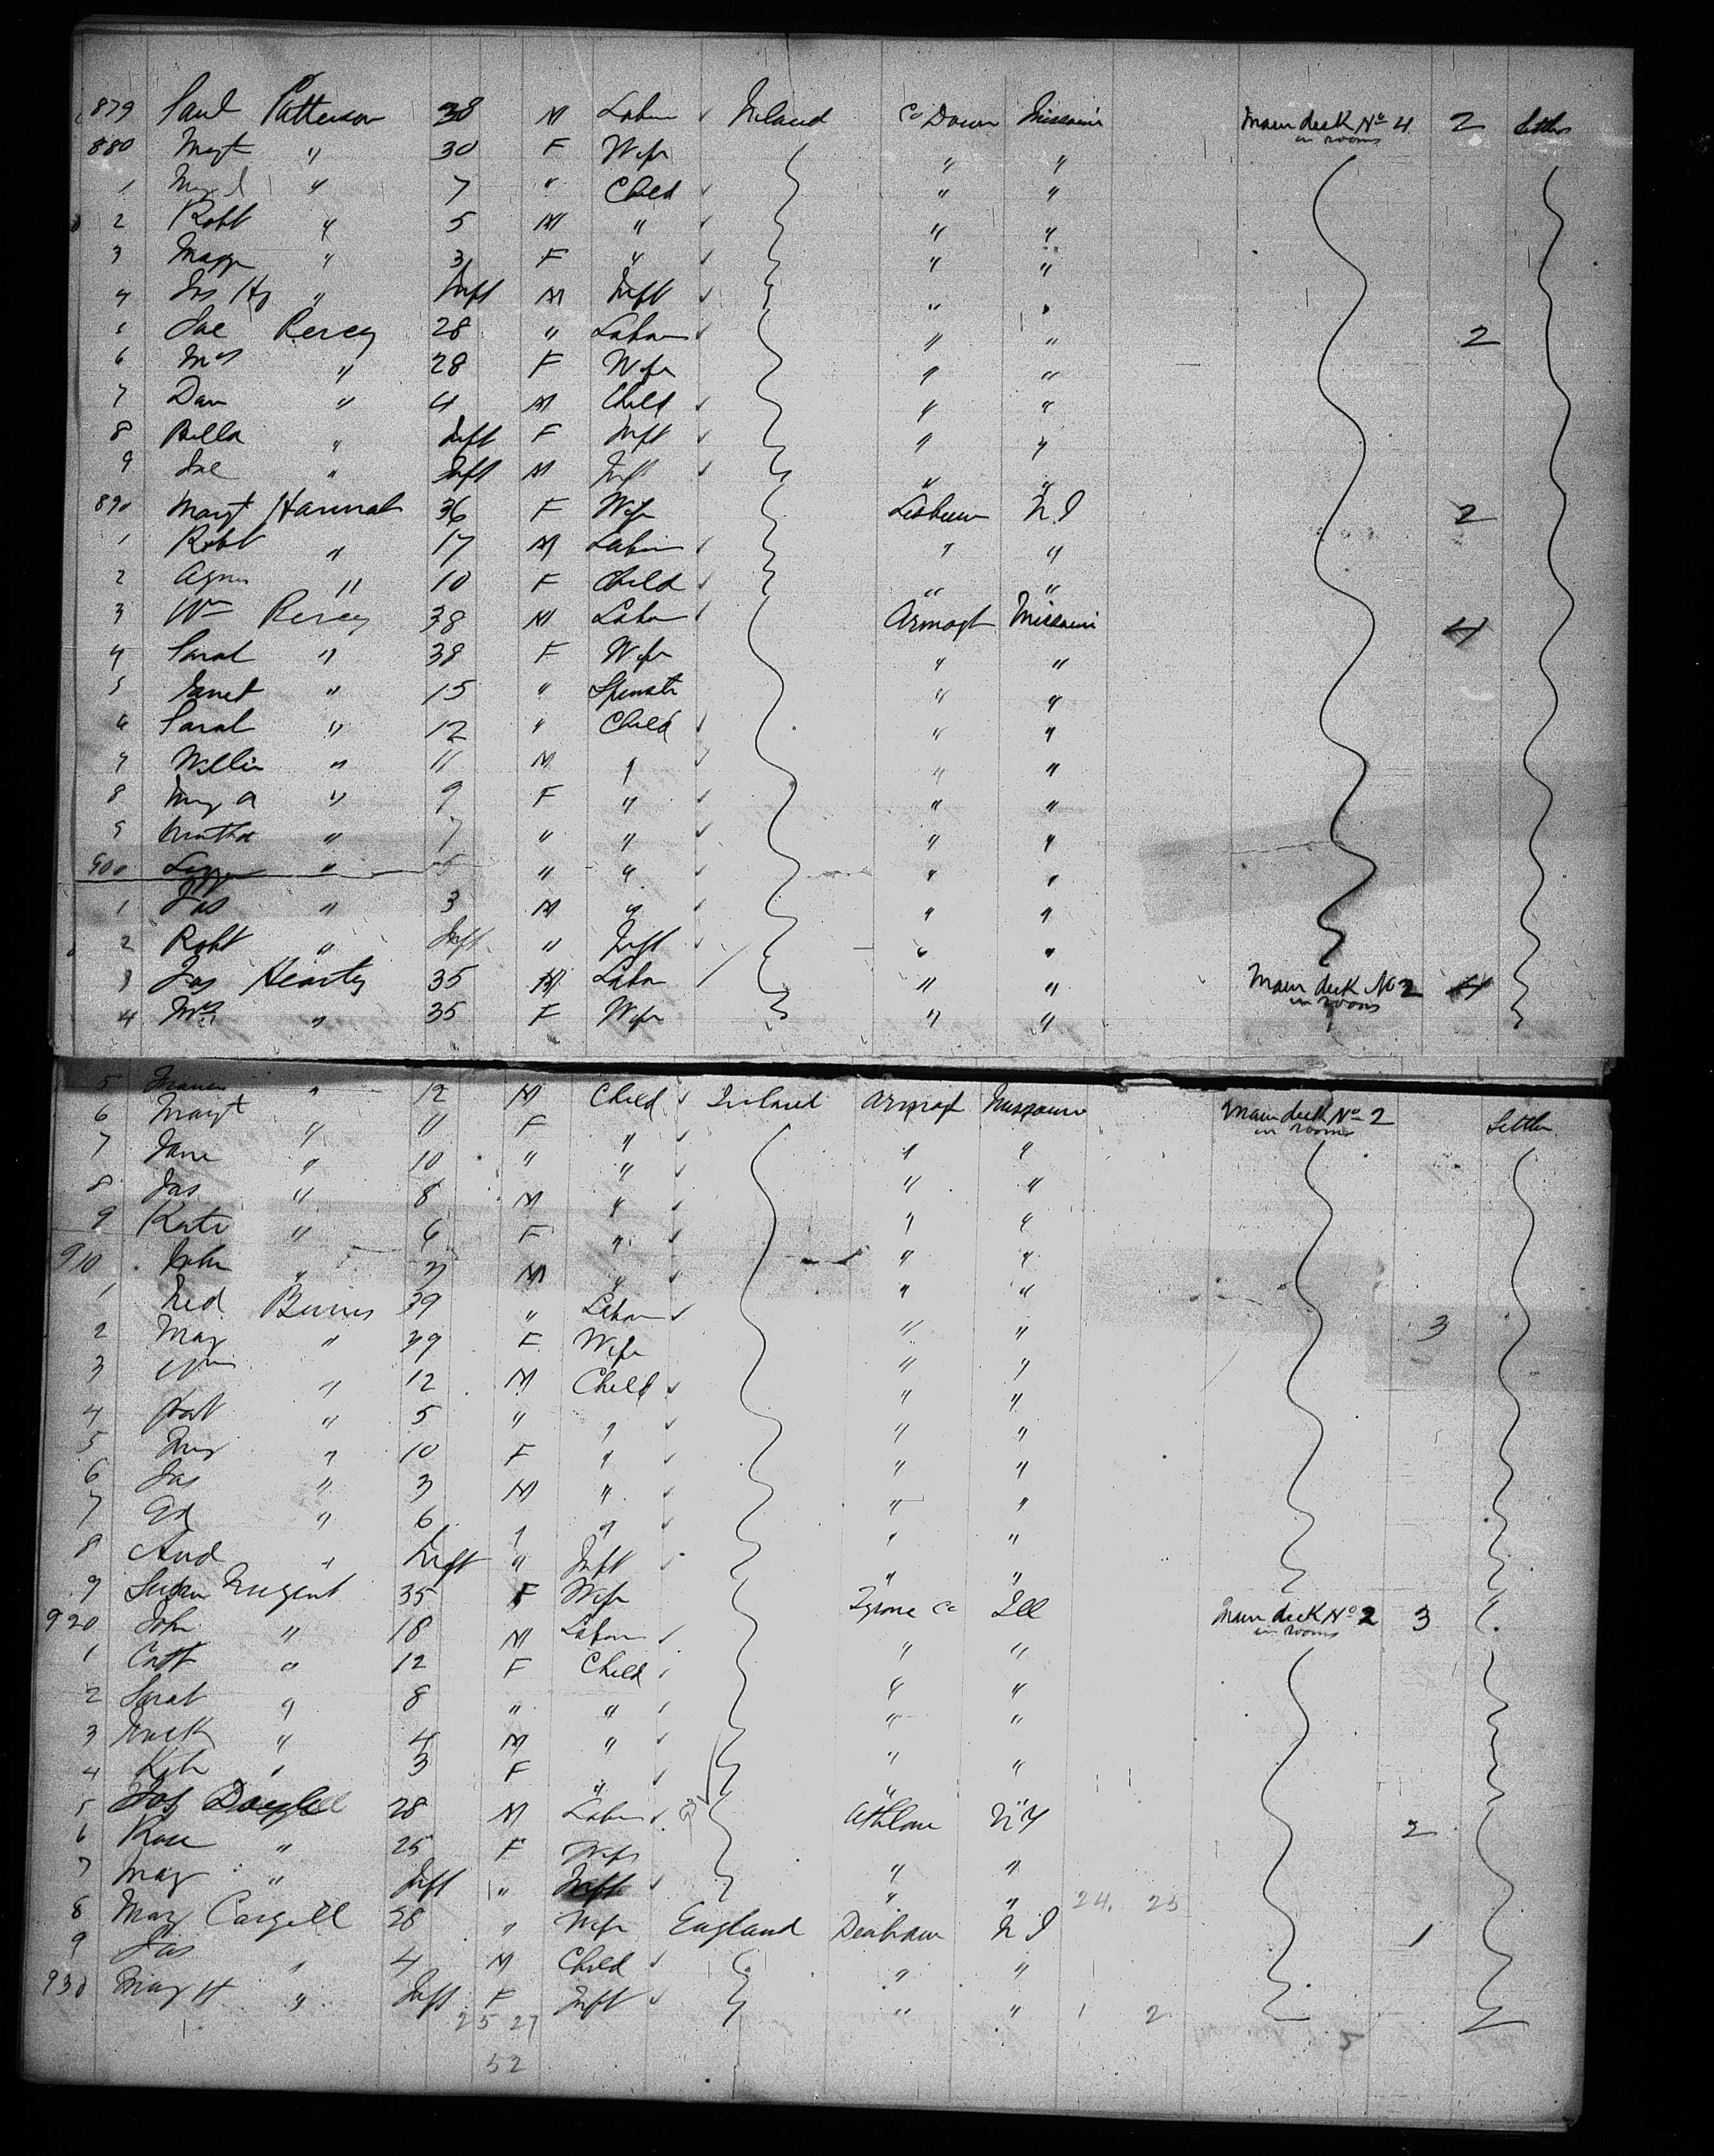 879 Saml Patterson 38 M Labor Ireland Co Down Missouri Main deck No 4 in rooms 2 Settler
880 Margt " 30 F Wife " "
1 " 7 " Child " "
2 Robt " 5 M " " "
3 Magge " 3 F " " "
4 Jas Hy " Inft M Inft " "
5 Joe Percy 28 " Labor " " 2
6 Mrs " 28 F Wife " "
7 Dan " 4 M Child " "
8 Bella " Inft F Inft " "
9 Joe " Inft M Inft " "
890 Margt Hannah 36 F Wife Lisburn N J 2
1 Robt " 17 M Labor " "
2 Agnes " 10 F Child " "
3 Wm Percy 38 M Labor Armagh Missouri 4
4 Sarah " 38 F Wife " "
5 " 15 " Spinster " "
6 Sarah " 12 " Child " "
7 Willie " 11 M " " "
8 Mary A " 9 F " " "
9 Martha " 7 " " " "
900 " 5 " " " "
1 Jas " 3 M " " "
2 Robt " Inft " Inft " "
3 Jas Hearty 35 M Labor " " Main deck No 2 in rooms 4
4 Mrs " 35 F Wife " "
5 " 12 M Child Ireland Armagh Missouri Main deck No 2 in rooms Settler
6 Margt " 11 F " " "
7 Jane " 10 " " " "
8 Jas " 8 M " " "
9 Kate " 6 F " " "
910 John " M " " "
1 Ned Burns 39 " Labor " " 3
2 Mary " 39 F Wife " "
3 Wm " 12 M Child " "
4 Pat " 5 " " " "
5 Mary " 10 F " " "
6 Jas " 3 M " " "
7 Ed " 6 " " " "
8 And " Inft " Inft " "
9 Susan Nugent 35 F Wife Tyrone Co Ill Main deck No 2 in rooms 3 "
920 John " 18 M Labor " "
1 Cath " 12 F Child " "
2 Sarah " 8 " " " "
3 " 4 M " " "
4 Kate " 3 F " " "
5 Jos 28 M Labor Athlone N Y 2
6 Rose " 25 F Wife " "
7 Mary " Inft " Inft " " 24. 25
8 Mary Cargill 28 " Wife England Denham N J 1
9 Jas " 4 M Child " "
930 Mary H " Inft F Inft " " 1 2
25 27 5
52